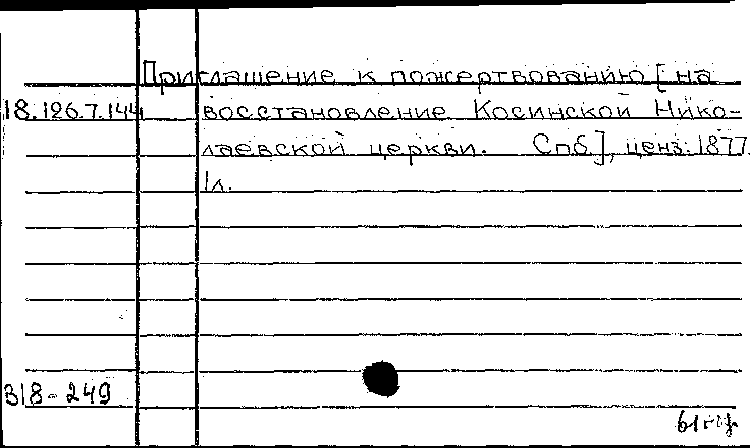 Приглашение к пожертвованию [на
18.126.7.144 восстановление Косинской Нико-
лаевской церкви. Спб], ценз. 1877
1л.
В18-249